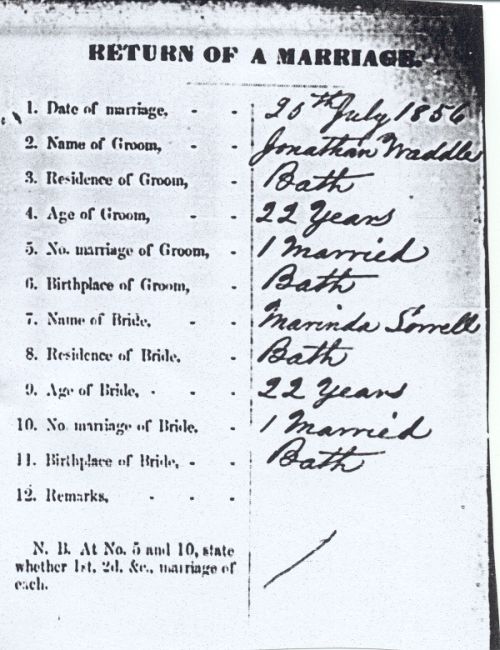 RETURN OF A MARRIAGE.
1. Date of marriage, - - 20th July 1856
2. Name of Groom, - - Jonathan Waddle
3. Residence of Groom, - Bath
4. Age of Groom, - - 22 Years
5. No. marriage of Groom, - 1 Married
6. Birthplace of Groom, - Bath
7. Name of Bride, - - Marinda Sorrell
8. Residence of Bride, - Bath
9. Age of Bride, - - - 22 Years
10. No. marriage of Bride, - 1 Married
11. Birthplace of Bride, - - Bath
12. Remarks, - - -
N. B. At No. 5 and 10, state
whether 1st, 2d, &c., marriage of
each.